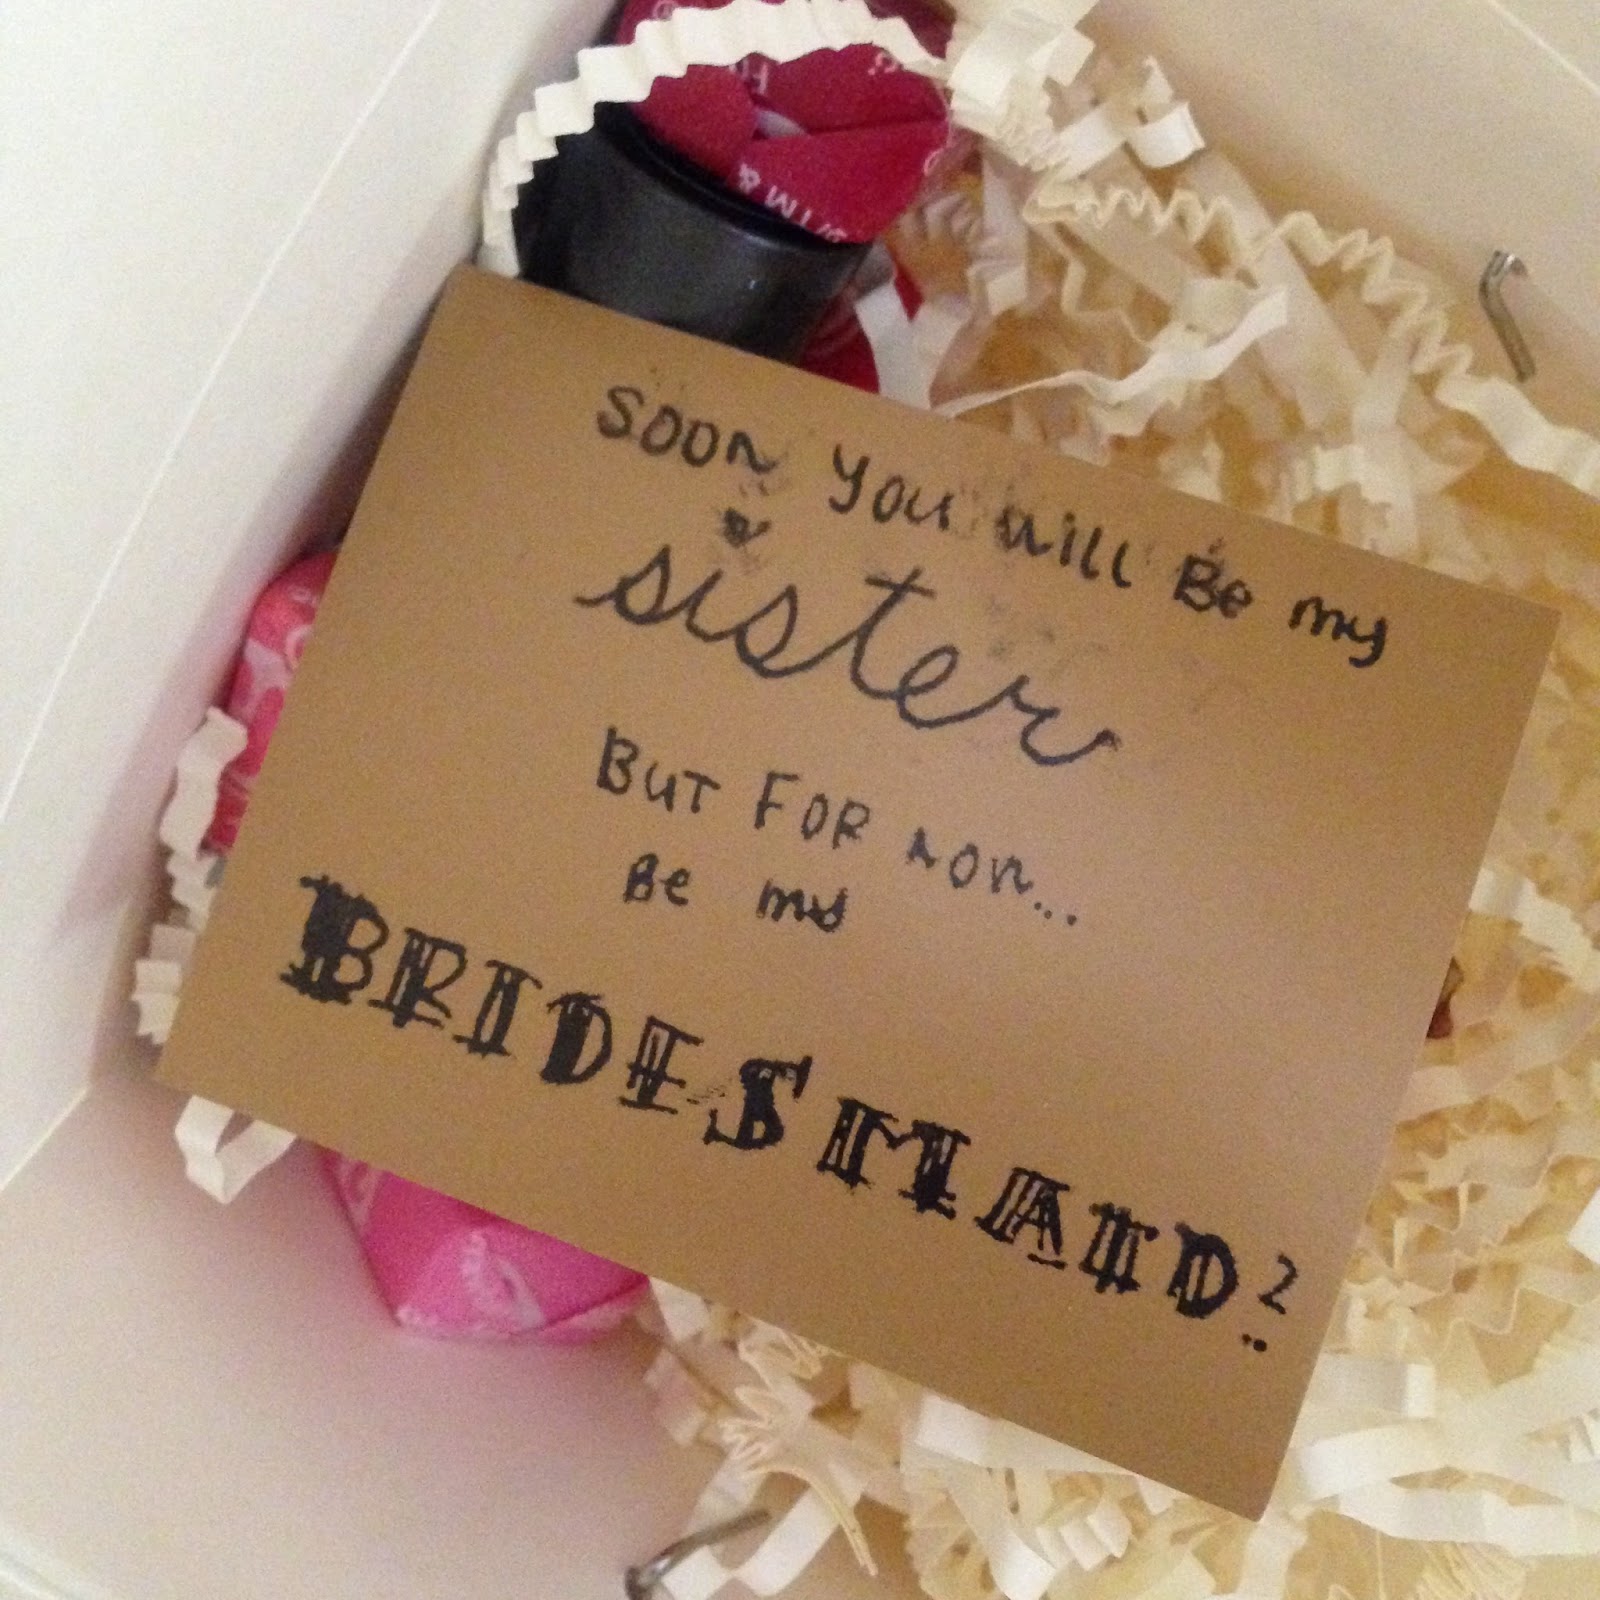 SOON YOU WILL BE my
sister
BUT FOR NOW...
BE my
BRIDESMAID?
TM &